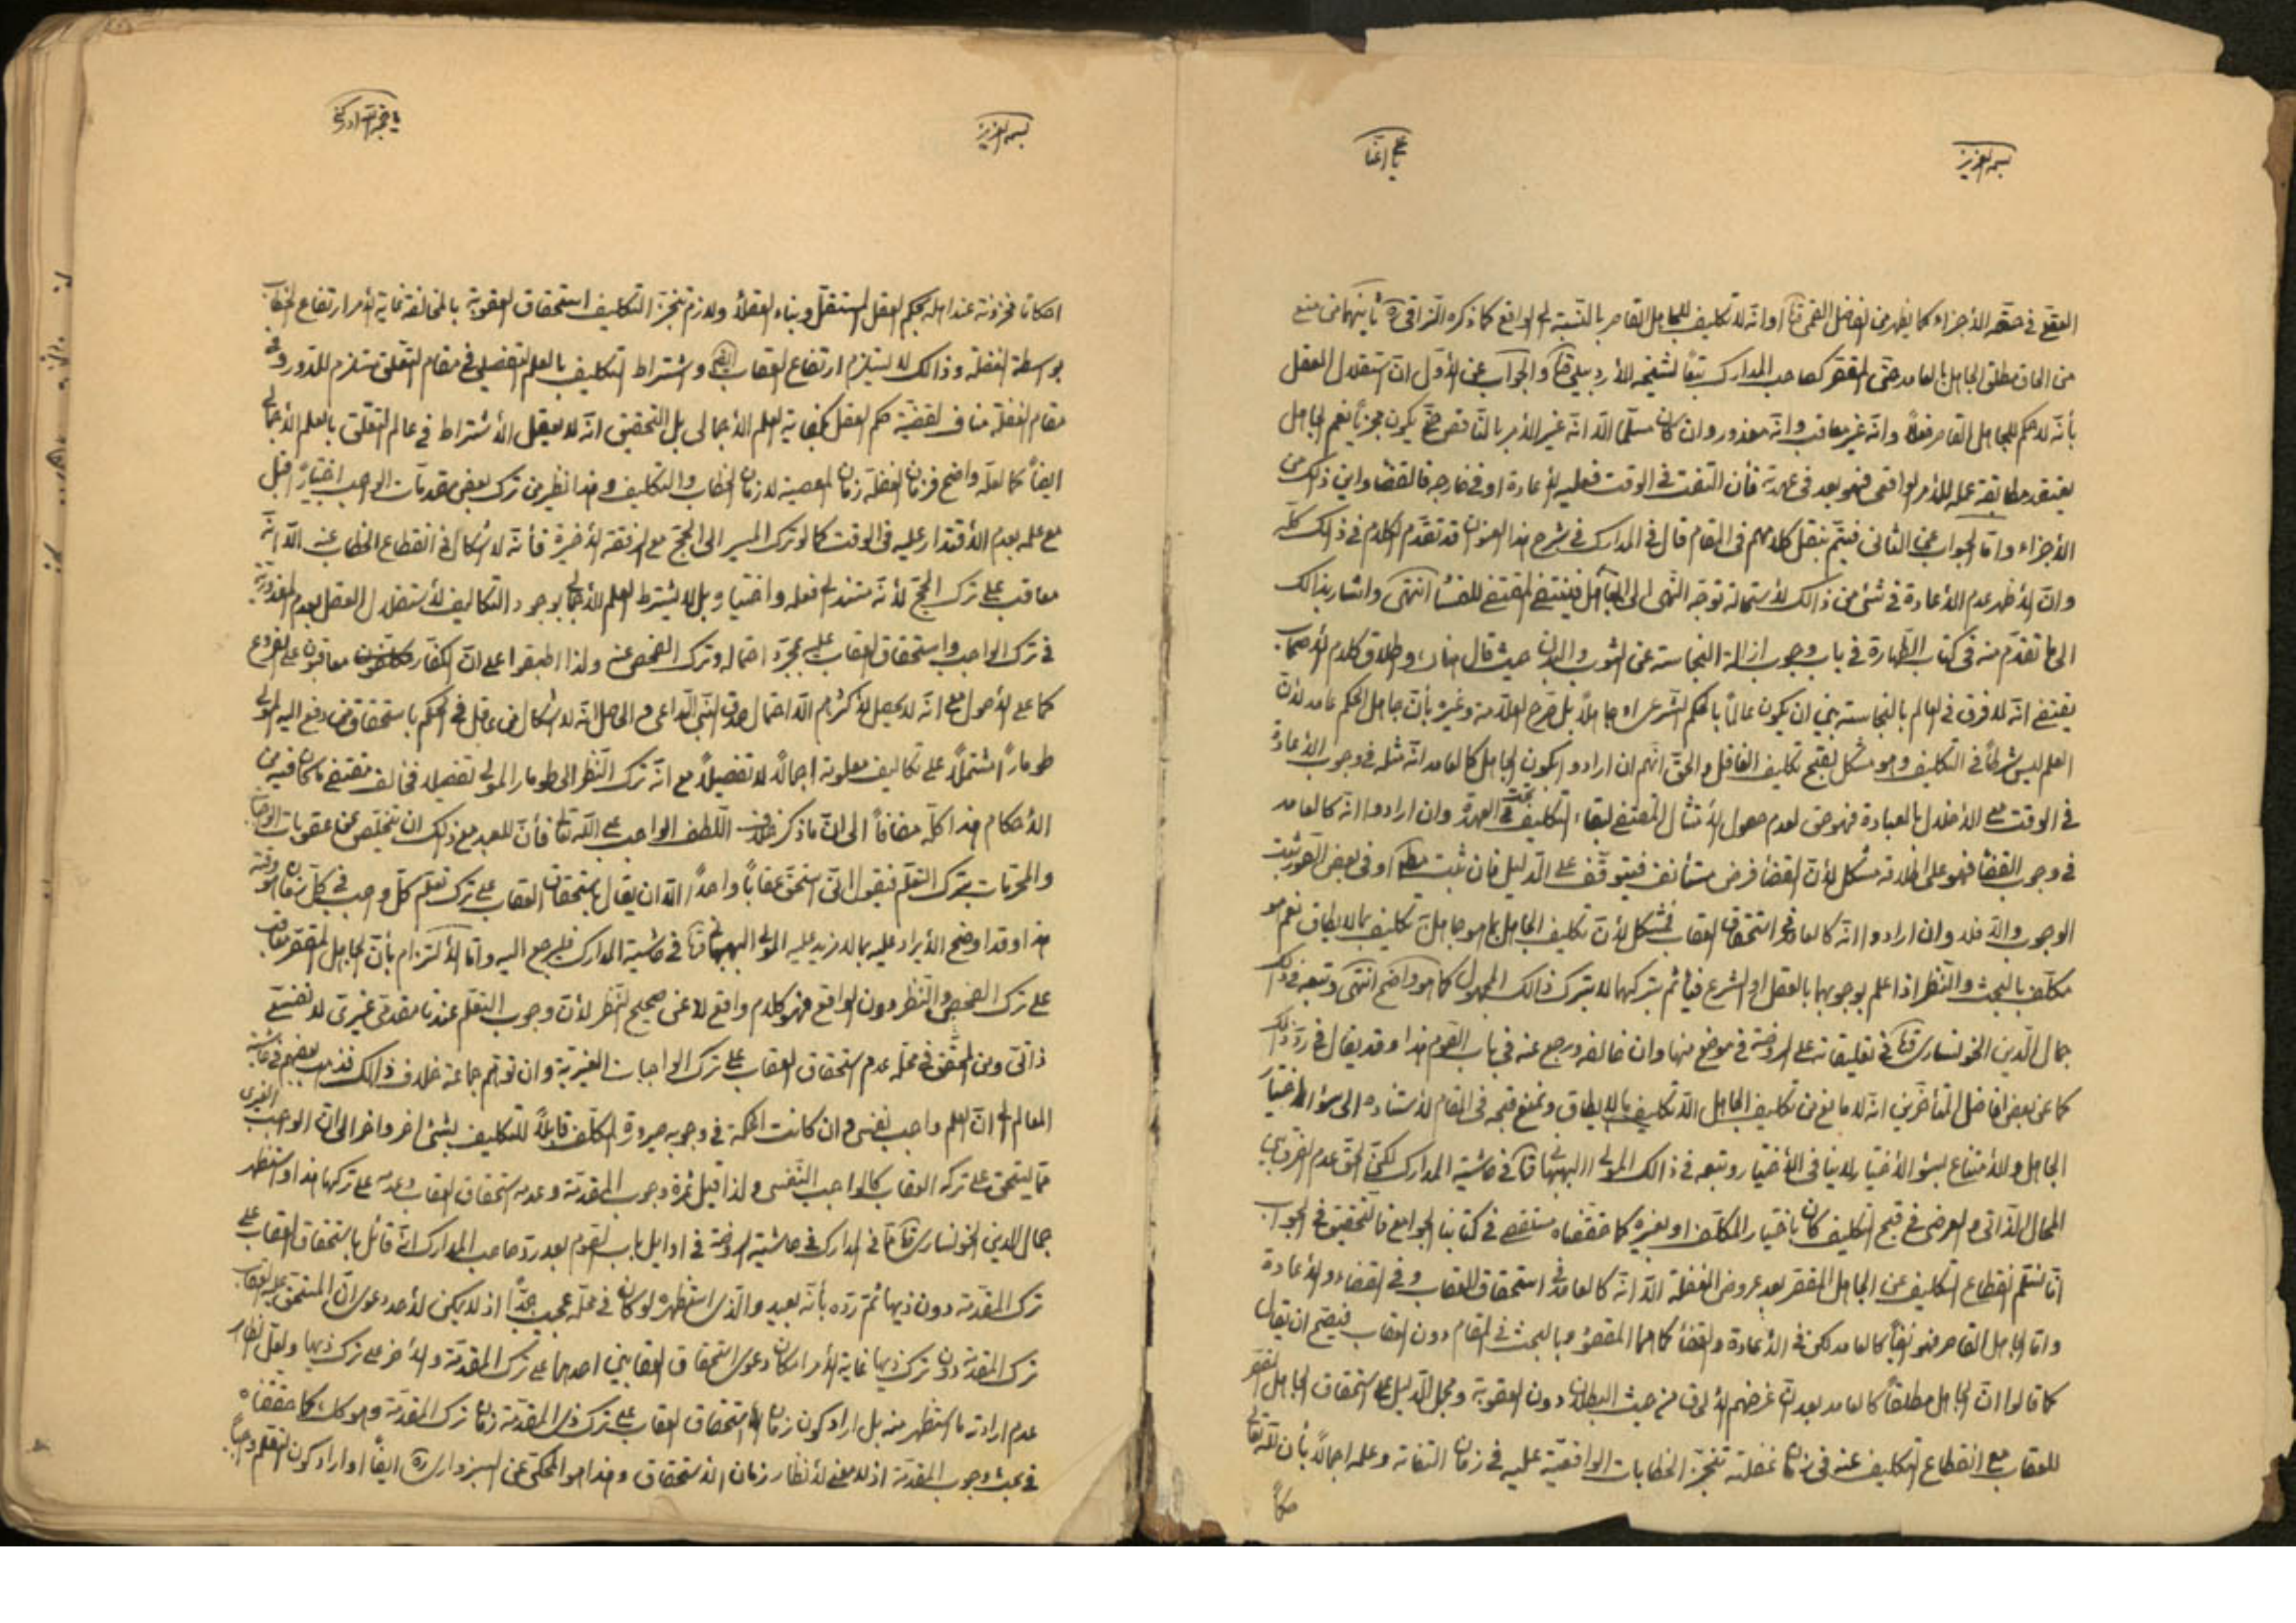 بسمه العزيز
يا علي اغثنا
العقل في حقه الأجزاء كما يظهر من الفاضل القمي قدّه او انّه لا تكليف للجاهل القاصر بالنسبة الى الواقع كما ذكره النراقي ره ثانيهما من منع
من الحاق مطلق الجاهل بالعامد حتى المقصّر كصاحب المدارك تبعاً لشيخه الأردبيلي قدّه والجواب عن الأوّل ان استقلال العقل
بأنّه لا حكم للجاهل القاصر فعلاً وانّه غير معاقب وانّه معذور وان كان مسلّماً الّا انّه غير الأمر بالناقص حتّى يكون مجزياً نعم الجاهل
يعتقد مطابقة عمله للأمر الواقعي فهو بعد في عهدته فأن التفت في الوقت فعليه الأعادة او في خارجه فالقضاء واين ذلك من
الأجزاء وامّا الجواب عن الثاني فيتمّ بنقل كلامهم في المقام قال في المدارك في شرح هذا العنوان قد تقدّم الكلام في ذلك كلّه
وانّ الأظهر عدم الأعادة في شئ من ذالك لأستحالة توجّه النهى الى الغافل فينتفي المقتضي للفساد انتهى واشار بذالك
الى ما تقدّم منه في كتاب الطّهارة في باب وجوب ازالة النجاسة عن الثوب والبدن حيث قال هناك واطلاق كلام الأصحاب
يقتضي انّه لا فرق في العالم بالنجاسة بين ان يكون عالماً بالحكم الشرعى او جاهلاً بل صرّح العلّامة وغيره بأنّ جاهل الحكم عامد لأنّ
العلم ليس شرطاً في التكليف وهو مشكل لقبح تكليف الغافل والحقّ انّهم ان ارادوا بكون الجاهل كالعامد انّه مثله في وجوب الأعادة
في الوقت مع الأخلال بالعبادة فهو حق لعدم حصول الأمتثال المقتضي لبقاء التكليف تحت العهدة وان ارادوا انّه كالعامد
في وجوب القضاء فهو على اطلاقه مشكل لأنّ القضاء فرض مستأنف فيتوقّف على الدّليل فان ثبت مطلقا او في بعض الصّور ثبت
الوجوب والّا فلا وان ارادوا انّه كالعامد في استحقاق العقاب فمشكل لأنّ تكليف الجاهل بما هو جاهل به تكليف بما لا يطاق نعم هو
مكلّف بالبحث والنّظر اذا علم بوجوبهما بالعقل او الشرع فيأثم بتركهما لا بترك ذالك المجهول كما هو واضح انتهى وتبعه في ذلك
جمال الدّين الخونسارى قدّه في تعليقاته على الروضة في موضع منها وان خالفه ورجع عنه في باب الصوم هذا وقد يقال في ردّ ذلك
كما عن بعض افاضل المتأخرين انّه لا مانع من تكليف الجاهل الّا تكليف بما لا يطاق ونمنع قبحه في المقام لأستناده الى سوء اختيار
الجاهل والأمتناع بسوء الأختيار لا ينافي الأختيار وتبعه في ذالك المولى البهبهاني قدّه في حاشية المدارك لكنّ الحقّ عدم الفرق بين
المحال الذاتى والعرضى في قبح التكليف كان باختيار المكلّف او بغيره كما حققناه مستقصى في كتابنا الجوامع فالتحقيق في الجواب
انّا نسلّم انقطاع التكليف عن الجاهل المقصّر بعد عروض الغفلة الّا انّه كالعامد في استحقاق العقاب وفي القضاء والأعادة
وامّا الجاهل القاصر فهو ايضاً كالعامد لكن في الأعادة والقضاء كما هما المقصود بالبحث في المقام دون العقاب فيصح ان يقال
كما قالوا انّ الجاهل مطلقاً كالعامد بعد انّ غرضهم الألحاق من حيث البطلان دون العقوبة ومجمل الدّليل على استحقاق الجاهل المقصّر
للعقاب مع انقطاع التكليف عنه في زمان غفلته تنجّز الخطابات الواقعيّة عليه في زمان التفاته وعلمه اجمالاً بأن للّه تعالى
احكاماً
بسمه العزيز
يا حجة الله ادركني
احكاماً مخزونة عند اهله بحكم العقل المستقلّ وبناء العقلاء ولازم تنجّز التكليف استحقاق العقوبة بالمخالفة غاية الأمر ارتفاع الخطاب
بواسطة الغفلة وذالك لا يستلزم ارتفاع العقاب ايضا واشتراط التكليف بالعلم التفصيلى في مقام التعلّق مستلزم للدّور وفي
مقام الغفلة مناف لقضيّة حكم العقل بكفاية العلم الأجمالى بل التحقيق انّه لا يعقل الأشتراط في عالم التعلّق بالعلم الأجمالى
ايضاً كما لعلّه واضح فزمان الغفلة زمان المعصية لا زمان الخطاب والتكليف وهذا نظير من ترك بعض مقدمات الواجب اختياراً قبل
مع علمه بعدم الأقتدار عليه في الوقت كما لو ترك المسير الى الحجّ مع الرفقة الأخيرة فأنّه لا اشكال في انقطاع الخطاب عنه الّا انّه
معاقب على ترك الحجّ لأنّه مستند الى فعله واختياره بل لا يشترط العلم الأجمالي بوجود التكاليف لأستقلال العقل بعدم المعذوريّة
في ترك الواجب واستحقاق العقاب عليه بمجرّد احتماله وترك الفحص عنه ولذا اطبقوا على انّ الكفّار معاقبون على الفروع
كما على الأصول مع انّه لا يحصل لأكثرهم الّا احتمال صدق النّبى الدّاعى والحاصل انّه لا اشكال من عاقل في الحكم باستحقاق من دفع اليه المولى
طوماراً مشتملاً على تكاليف معلومة اجمالاً لا تفصيلاً مع انّه ترك النّظر الى طومار المولى تفصيلا فخالف مقتضى ما كان فيه من
الأحكام هذا كلّه مضافاً الى انّ ما ذكر خلاف اللّطف الواجب على اللّه تعالى فأنّ للعبد مع ذلك ان يتخلّص عن عقوبات الواجبات
والمحرّمات بترك التعلّم فيقول انّى استحق عقاباً واحداً الّا ان يقال باستحقاق العقاب على ترك تعلّم كلّ واجب في كلّ زمان هو وقته
هذا وقد اوضح الأيراد عليه بما لا مزيد عليه المولى البهبهاني قدّه في حاشية المدارك فليرجع اليه وامّا الألتزام بأنّ الجاهل المقصّر يعاقب
على ترك الفحص والنّظر دون الواقع فهو كلام واقع لا عن صحيح النّظر لأنّ وجوب التعلّم عندنا مقدّمى غيرىّ لا نفسىّ
ذاتى ومن المحقّق في محلّه عدم استحقاق العقاب على ترك الواجبات الغيريّة وان توهّم جماعة خلاف ذالك فذهب بعضهم في حاشية
المعالم الى انّ العلم واجب نفسى وان كانت الحكمة في وجوبه صيرورة المكلّف قابلاً للتكليف بشئ اخر واخر الى انّ الواجب الغيرى
ممّا يستحق على تركه العقاب كالواجب النّفسى ولذا قيل ثمرة وجوب المقدّمة وعدمه استحقاق العقاب وعدمه على تركها هذا واستظهر
جمال الدين الخونسارى قدّه في المدارك في حاشية الروضة في اوايل باب الصوم بعد ردّ صاحب المدارك انّه قائل باستحقاق العقاب على
ترك المقدّمة دون ذيها ثمّ ردّه بأنّه بعيد والّذى استظهره لو كان في محلّه عجيب جدّاً اذ لا يمكن لأحد دعوى انّ المستحق عليه العقاب
ترك المقدّمة دون ترك ذيها غاية الأمر امكان دعوى استحقاق العقابين احدهما على ترك المقدّمة والأخر على ترك ذيها ولعلّ الظاهر
عدم ارادته ما استظهر منه بل اراد كون زمان الأستحقاق العقاب على ترك ذى المقدّمة زمان ترك المقدّمة وهو كذلك كما حققناه
في بحث وجوب المقدّمة اذ لا معنى لأنتظار زمان الأستحقاق وهذا هو المحكىّ عن السبزوارى ره ايضاً او اراد كون التعلّم واجباً